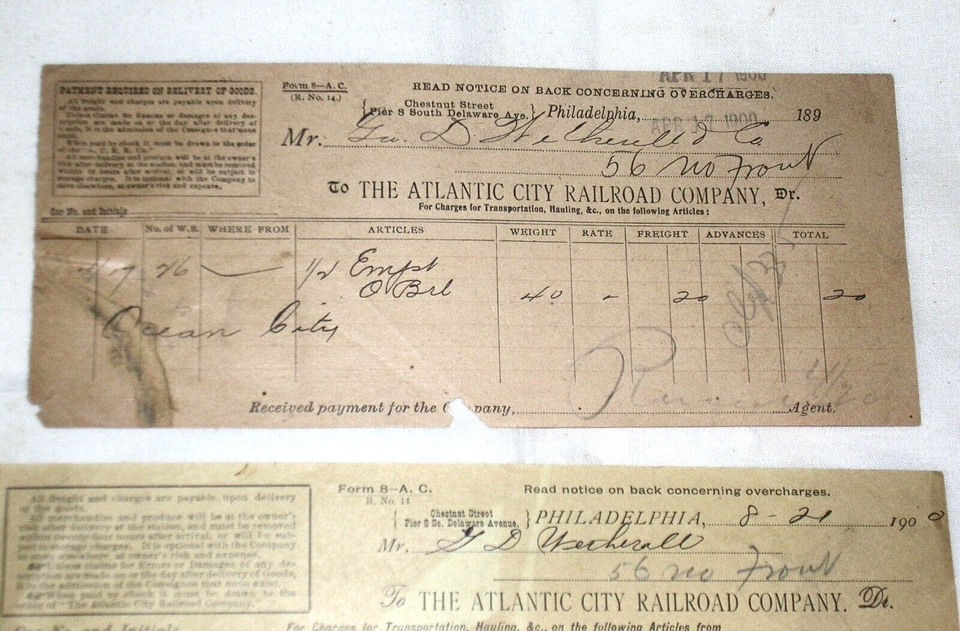 APR 17 1900
PAYMENT REQUIRED ON DELIVERY OF GOODS.
All freight and charges are payable upon delivery
of the goods.
Unless claims for Errors or damages
are made on or the day after delivery of
goods, it is the admission of the Consignee that none
exist.
When paid by check it must be drawn to the order
of the "A. C. R. R. Co."
All merchandise and produce will be at the owner's
risk after delivery at the station, and must be removed
within 24 hours after arrival, or will be subject to
storage charges. It is optional with the Company to
store elsewhere, at owner's risk and expense.
Form 8—A. C.
(R. No. 14.)
READ NOTICE ON BACK CONCERNING OVERCHARGES.
Chestnut Street
Pier 8 South Delaware Ave.
Philadelphia, APR 17 1900 189
Mr. Geo. D Wetherell & Co
56 No Front
To THE ATLANTIC CITY RAILROAD COMPANY, Dr.
For Charges for Transportation, Hauling, &c., on the following Articles:
Car No. and Initials
DATE No. of W.B. WHERE FROM ARTICLES WEIGHT RATE FREIGHT ADVANCES TOTAL
4/17 26 1/2 Empt
O Brl 40 - 20 20
Ocean City
Received payment for the Company, Agent.
All freight and charges are payable upon delivery
of the goods.
All merchandise and produce will be at the owner's
risk after delivery at the station, and must be removed
within twenty-four hours after arrival, or will be sub-
ject to storage charges. It is optional with the Company
to store elsewhere, at owner's risk and expense.
Unless claims for Errors or Damages of any de-
scription are made on or the day after delivery of goods,
it is the admission of the Consignee that none exist.
When paid by check it must be drawn to the
order of "The Atlantic City Railroad Company."
Form 8—A. C.
R. No. 14
Read notice on back concerning overcharges.
Chestnut Street
Pier 8 So. Delaware Avenue,
PHILADELPHIA, 8-21 1900
Mr. G D Wetherall
56 No Front
To THE ATLANTIC CITY RAILROAD COMPANY. Dr.
Car No. and Initials
For Charges for Transportation, Hauling, &c., on the following Articles from